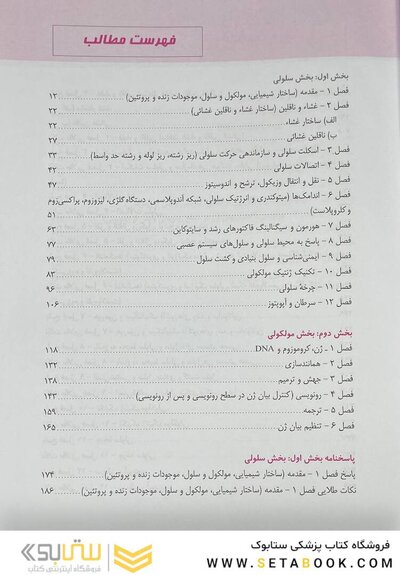 فهرست مطالب
بخش اول: بخش سلولی
فصل ۱ – مقدمه (ساختار شیمیایی، مولکول و سلول، موجودات زنده و پروتئین) ۱۲
فصل ۲ – غشاء و ناقلین (ساختار غشاء و ناقلین غشائی) ۲۲
الف) ساختار غشاء ۲۲
ب) ناقلین غشائی ۲۷
فصل ۳ – اسکلت سلولی و سازماندهی حرکت سلولی (ریز رشته، ریز لوله و رشته حد واسط) ۳۳
فصل ۴ – اتصالات سلولی ۴۲
فصل ۵ – نقل و انتقال وزیکول، ترشح و اندوسیتوز ۴۷
فصل ۶ – اندامک‌ها (میتوکندری و انرژتیک سلولی، شبکه آندوپلاسمی، دستگاه گلژی، لیزوزوم، پراکسی‌زوم
و کلروپلاست) ۵۱
فصل ۷ – هورمون و سیگنالینگ فاکتورهای رشد و سایتوکاین ۶۳
فصل ۸ – پاسخ به محیط سلولی و سلول‌های سیستم عصبی ۷۷
فصل ۹ – ایمنی‌شناسی و سلول بنیادی و کشت سلول ۷۹
فصل ۱۰ – تکنیک ژنتیک مولکولی ۸۳
فصل ۱۱ – چرخهٔ سلولی ۹۶
فصل ۱۲ – سرطان و آپوپتوز ۱۰۶
بخش دوم: بخش مولکولی
فصل ۱ – ژن، کروموزوم و DNA ۱۱۸
فصل ۲ – همانندسازی ۱۳۲
فصل ۳ – جهش و ترمیم ۱۳۸
فصل ۴ – رونویسی (کنترل بیان ژن در سطح رونویسی و پس از رونویسی) ۱۴۳
فصل ۵ – ترجمه ۱۵۹
فصل ۶ – تنظیم بیان ژن ۱۶۵
پاسخنامه بخش اول: بخش سلولی
پاسخ فصل ۱ – مقدمه (ساختار شیمیایی، مولکول و سلول، موجودات زنده و پروتئین) ۱۷۴
نکات طلایی فصل ۱ – مقدمه (ساختار شیمیایی، مولکول و سلول، موجودات زنده و پروتئین) ۱۸۶
فروشگاه کتاب پزشکی ستابوک
WWW.SETABOOK.COM
ستابوک
فروشگاه اینترنتی کتاب